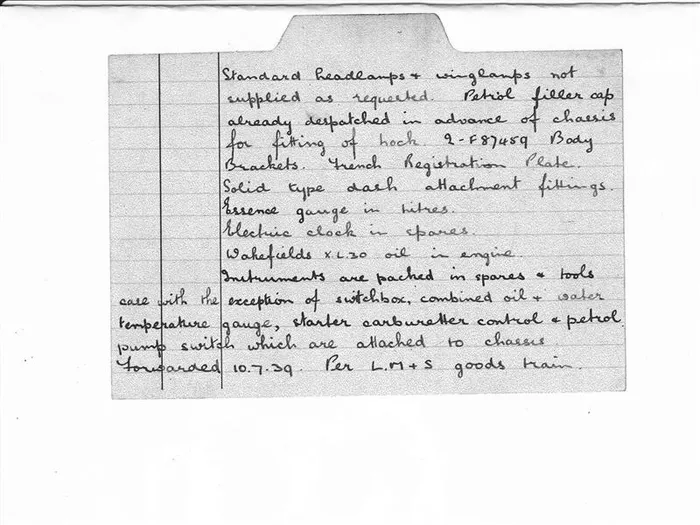 Standard headlamps & winglamps not
supplied as requested. Petrol filler cap
already despatched in advance of chassis
for fitting of lock. 2-F87459 Body
Brackets. French Registration Plate.
Solid type dash attachment fittings.
Essence gauge in litres.
Electric clock in spares.
Wakefields X.L.30 oil in engine.
Instruments are packed in spares & tools
case with the exception of switchbox, combined oil & water
temperature gauge, starter carburetter control & petrol
pump switch which are attached to chassis.
Forwarded 10.7.39. Per L.M & S goods train.